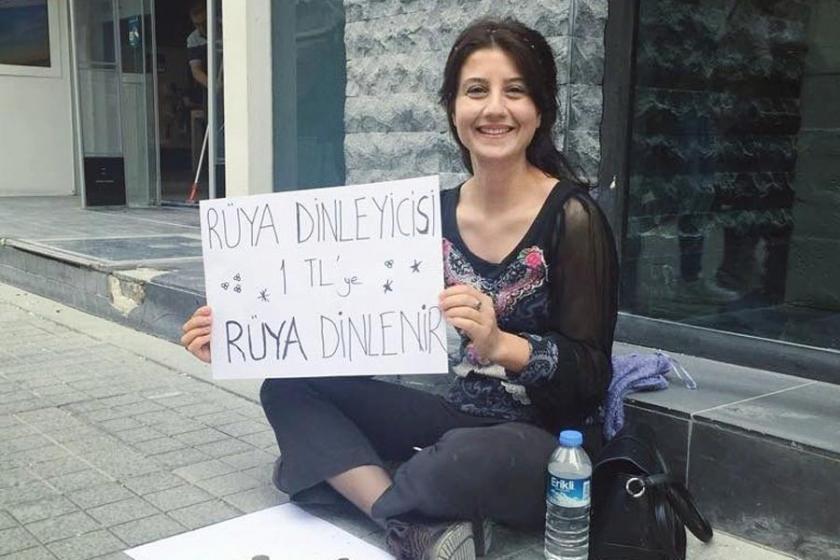 RÜYA DİNLEYİCİSİ
1 TL'ye
RÜYA DİNLENİR
Erikli